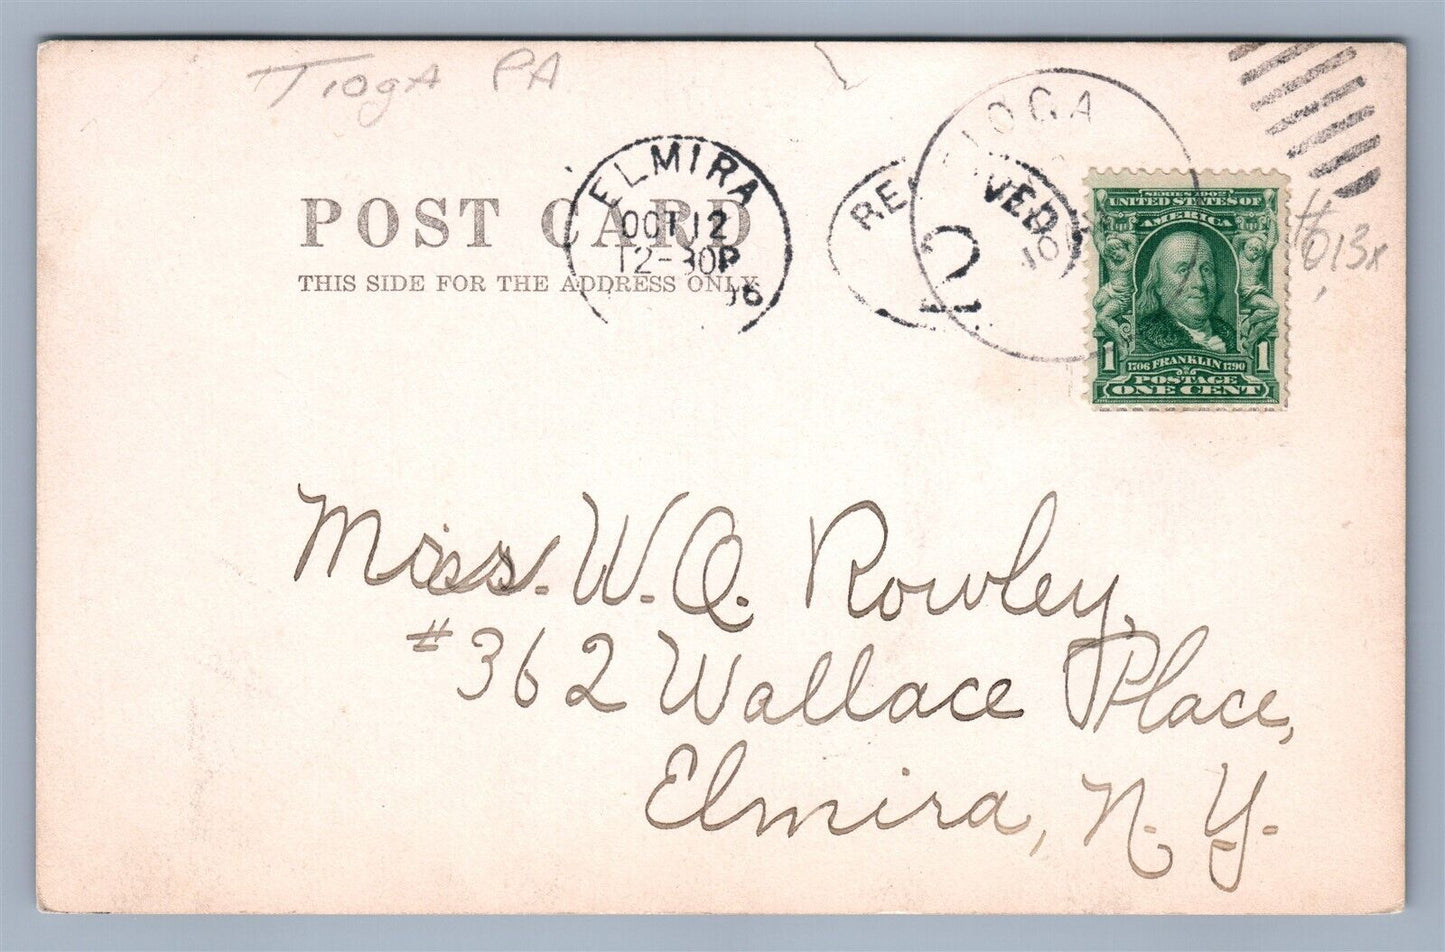 Tioga PA
POST CARD
THIS SIDE FOR THE ADDRESS ONLY
ELMIRA
OCT 12
12-30P
06
RECEIVED
2
TIOGA
SERIES 1902
UNITED STATES OF
AMERICA
1 1706 FRANKLIN 1790 1
POSTAGE
ONE CENT
Miss. W. Q. Rowley,
#362 Wallace Place,
Elmira, N. Y.